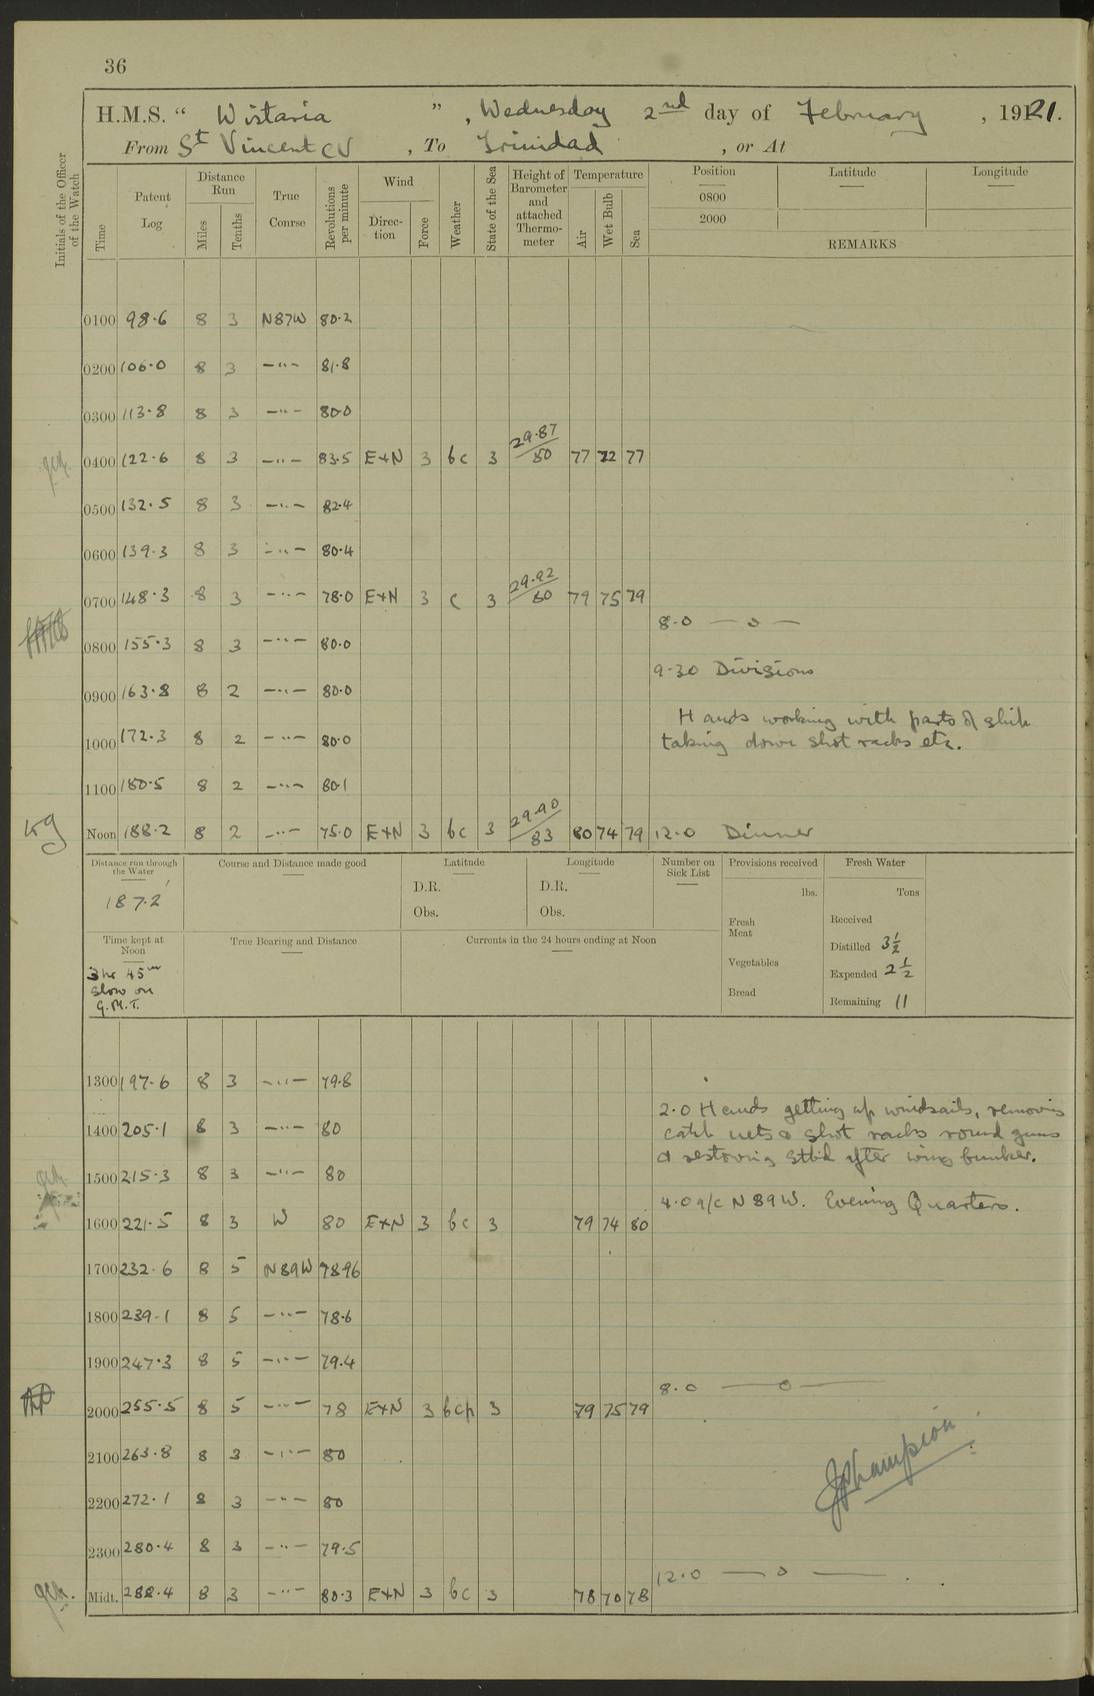 36
H.M.S. " Wistaria ", Wednesday 2nd day of February, 1921.
From St Vincent CV, To Trinidad, or At
Initials of the Officer of the Watch
Time
Patent Log
Distance Run
Miles
Tenths
True Course
Revolutions per minute
Wind
Direction
Force
Weather
State of the Sea
Height of Barometer and attached Thermometer
Temperature
Air
Wet Bulb
Sea
Position Latitude Longitude
0800
2000
REMARKS
0100 98.6 8 3 N87W 80.2
0200 106.0 8 3 —"— 81.8
0300 113.8 8 3 —"— 80.0
0400 122.6 8 3 —"— 83.5 E×N 3 bc 3 29.87/80 77 72 77
0500 132.5 8 3 —"— 82.4
0600 139.3 8 3 —"— 80.4
0700 148.3 8 3 —"— 78.0 E×N 3 c 3 29.92/80 79 75 79
8.0 — o —
0800 155.3 8 3 —"— 80.0
9.30 Divisions
0900 163.8 8 2 —"— 80.0
Hands working with parts of ship
1000 172.3 8 2 —"— 80.0 taking down shot racks etc.
1100 180.5 8 2 —"— 80.1
Noon 188.2 8 2 —"— 75.0 E×N 3 bc 3 29.90/83 80 74 79 12.0 Dinner
Distance run through the Water
187.2'
Course and Distance made good
Latitude
D.R.
Obs.
Longitude
D.R.
Obs.
Number on Sick List
Provisions received
lbs.
Fresh Meat
Vegetables
Bread
Fresh Water
Tons
Received
Distilled 3 1/2
Expended 2 1/2
Remaining 11
Time kept at Noon
3 hr 45m
slow on
G.M.T.
True Bearing and Distance
Currents in the 24 hours ending at Noon
1300 197.6 8 3 —"— 79.8
2.0 Hands getting up windsails, removing
1400 205.1 8 3 —"— 80 catch nets & shot racks round guns
& restoring Stbd after wing bunker.
1500 215.3 8 3 —"— 80
4.0 a/c N89W. Evening Quarters.
1600 221.5 8 3 W 80 E×N 3 bc 3 79 74 80
1700 232.6 8 5 N89W 78.96
1800 239.1 8 5 —"— 78.6
1900 247.3 8 5 —"— 79.4
8.0 — o —
2000 255.5 8 5 —"— 78 E×N 3 bcp 3 79 75 79
2100 263.8 8 3 —"— 80
Champion
2200 272.1 8 3 —"— 80
2300 280.4 8 3 —"— 79.5
12.0 — o —
Midt. 288.4 8 3 —"— 80.3 E×N 3 bc 3 78 70 78